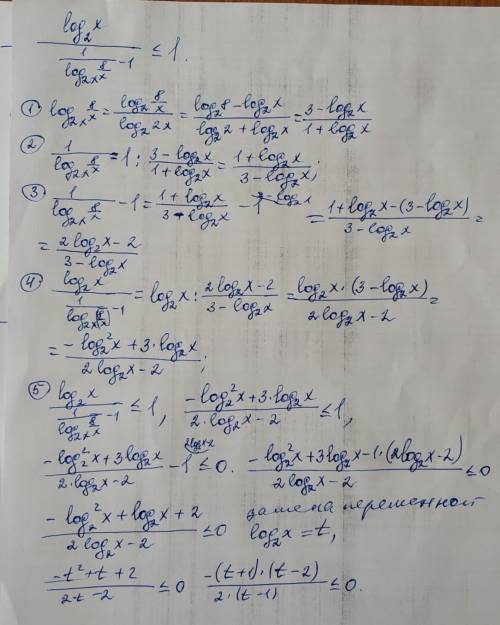 log₂x / (1/(log₂ₓ 8/x) - 1) ≤ 1.
① log₂ₓ 8/x = (log₂ 8/x)/(log₂ 2x) = (log₂8 - log₂x)/(log₂2 + log₂x) = (3 - log₂x)/(1 + log₂x)
② 1/(log₂ₓ 8/x) = 1 : (3 - log₂x)/(1 + log₂x) = (1 + log₂x)/(3 - log₂x);
③ 1/(log₂ₓ 8/x) - 1 = (1 + log₂x)/(3 - log₂x) - 1^(3 - log₂x) = (1 + log₂x - (3 - log₂x))/(3 - log₂x) =
= (2log₂x - 2)/(3 - log₂x)
④ log₂x / (1/(log₂ₓ(8/x)) - 1) = log₂x : (2log₂x - 2)/(3 - log₂x) = (log₂x · (3 - log₂x))/(2log₂x - 2) =
= (-log₂²x + 3·log₂x)/(2log₂x - 2);
⑤ log₂x / (1/(log₂ₓ 8/x) - 1) ≤ 1, (-log₂²x + 3·log₂x)/(2·log₂x - 2) ≤ 1,
(-log₂²x + 3log₂x)/(2·log₂x - 2) - 1^(2log₂x-2) ≤ 0. (-log₂²x + 3log₂x - 1·(2log₂x - 2))/(2log₂x - 2) ≤ 0
(-log₂²x + log₂x + 2)/(2log₂x - 2) ≤ 0 замена переменной
log₂x = t,
(-t² + t + 2)/(2t - 2) ≤ 0 (-(t+1)·(t-2))/(2·(t-1)) ≤ 0.